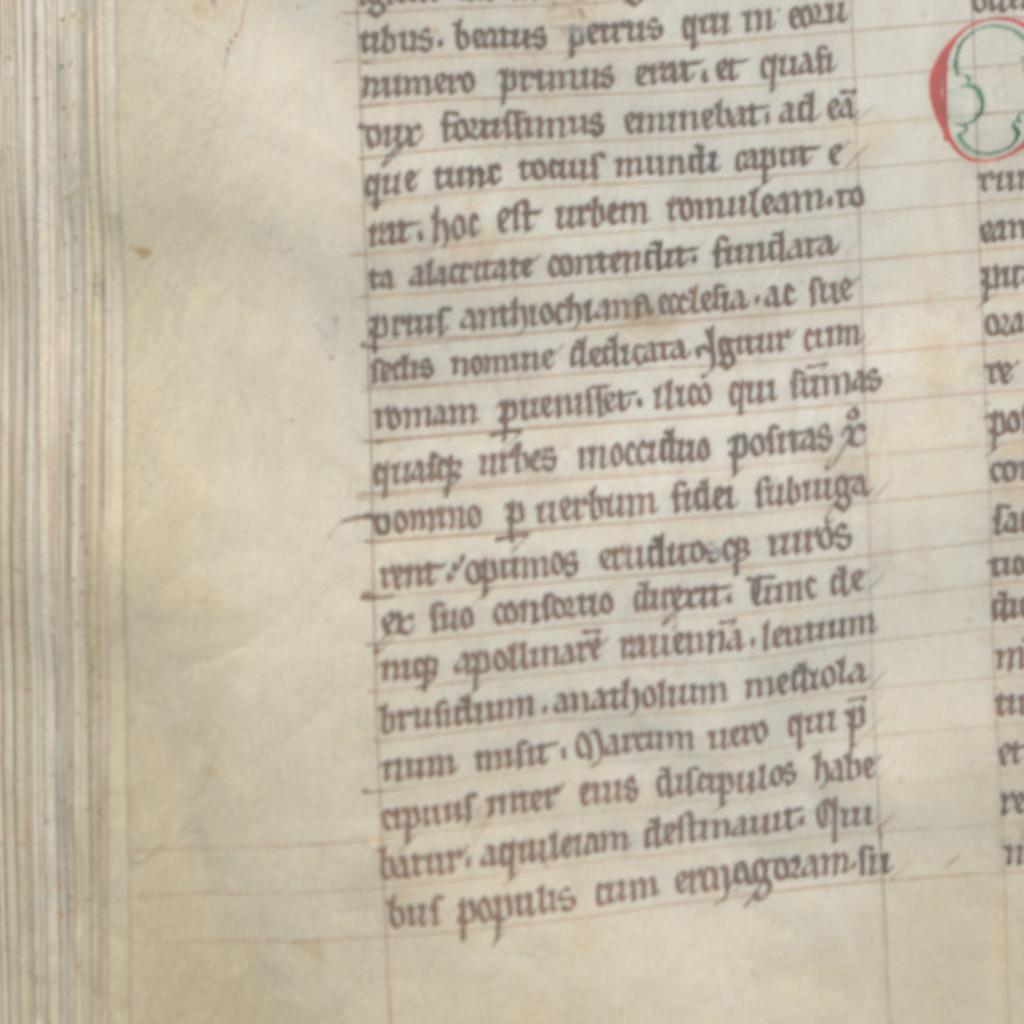 tibus. beatus petrus qui in eoru
numero primus erat. et quasi
dux fortissimus eminebat. ad eā
que tunc totius mundi caput e
rat. hoc est urbem romuleam. to
ta alacritate contendit. fundata
prius anthiochiana ecclesia. ac sue
sedis nomine dedicata. Igitur cum
romam puenisset. ilico qui sūmas
quasq; urbes inocciduo positas xͦ
domino p uerbum fidei subiuga
rent. optimos eruditosq; uiros
ex suo consortio direxit. Tunc de
niq; apollinarē rauennā. leucium
brusidium. anatholium mediola
num misit. Marcum uero qui p̄
cipuus inter eius discipulos habe
batur. aquileiam destinauit. Qui
bus populis cum ermagoram. su
rum
eam
re
et